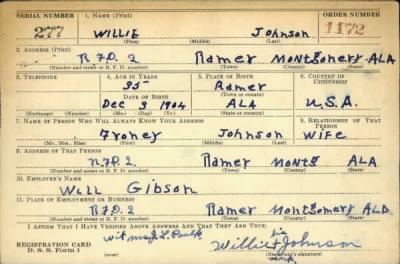 SERIAL NUMBER 1. NAME (Print) ORDER NUMBER
277 WILLIE Johnson 1172
(First) (Middle) (Last)
2. ADDRESS (Print)
R.F.D. 2 Ramer Montgomery ALA
(Number and street or R. F. D. number) (Town) (County) (State)
3. TELEPHONE 4. AGE IN YEARS 5. PLACE OF BIRTH 6. COUNTRY OF CITIZENSHIP
35 Ramer
DATE OF BIRTH (Town or county)
Dec 3 1904 ALA U.S.A.
(Exchange) (Number) (Mo.) (Day) (Yr.) (State or country)
7. NAME OF PERSON WHO WILL ALWAYS KNOW YOUR ADDRESS 8. RELATIONSHIP OF THAT PERSON
Froney Johnson Wife
(Mr., Mrs., Miss) (First) (Middle) (Last)
9. ADDRESS OF THAT PERSON
R.F.D. 2. Ramer Montg ALA
(Number and street or R. F. D. number) (Town) (County) (State)
10. EMPLOYER'S NAME
Will Gibson
11. PLACE OF EMPLOYMENT OR BUSINESS
R.F.D. 2 Ramer Montgomery ALA
(Number and street or R. F. D. number) (Town) (County) (State)
I AFFIRM THAT I HAVE VERIFIED ABOVE ANSWERS AND THAT THEY ARE TRUE.
REGISTRATION CARD
D. S. S. Form 1
his
Willie Johnson
mark
(Registrant's signature)